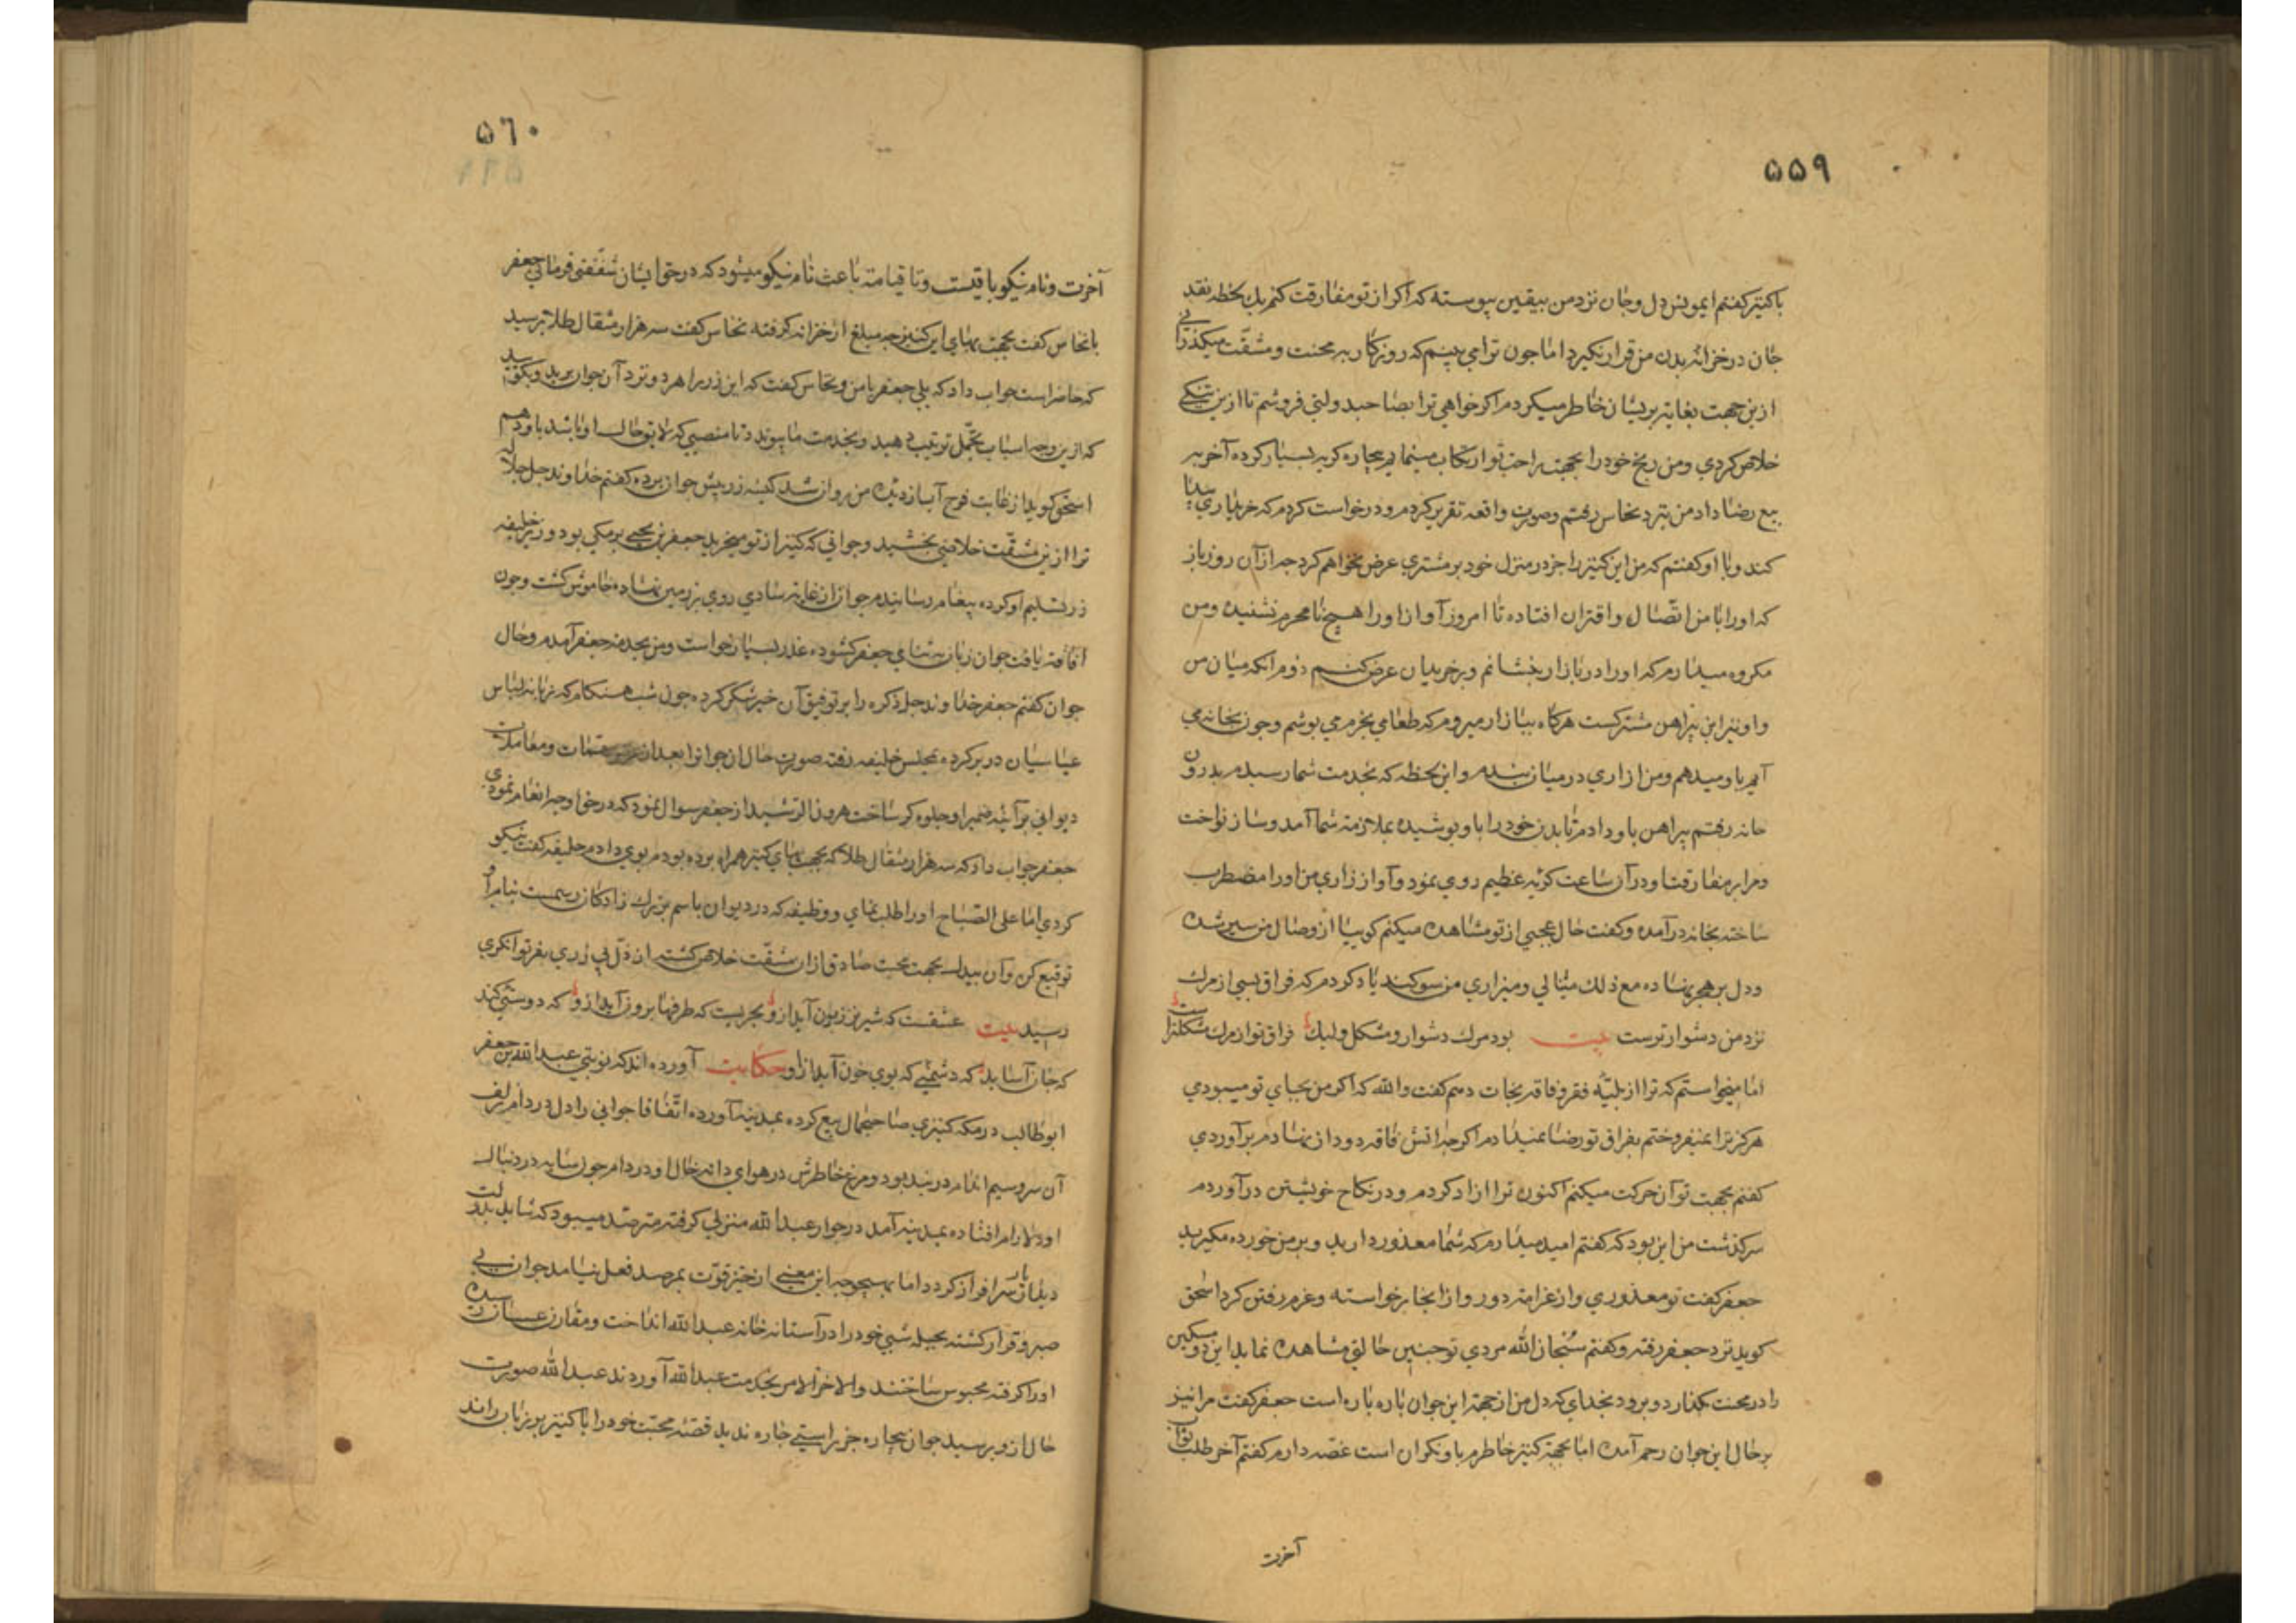 ۵۵۹
باکنیز کفتم ای مونس دل وجان نزد من بیقین پیوسته که اکر از تو مفارقت کنم یك لحظه نقد
جان در خزانه بدن من قرار نکیرد اما چون ترا می بینم که روزکار به محنت و مشقت میکذرانی
ازین جهت بغایت پریشان خاطر میکردم اکر خواهی ترا بصاحبدولتی فروشم تا ازین تنکی
خلاص کردی ومن رنج خود را بجهت راحت تو ارتکاب مینمایم بیچاره کریه بسیار کرده آخر به
بیع رضا داد من نزد نخاس رفتم وصورت واقعه تقریر کردم و درخواست کردم که خریداری پیدا
کند وبا او کفتم که من این کنیز را جز در منزل خود بر مشتری عرض نخواهم کرد چه از آن روز باز
که او را با من اتصال واقتران افتاده تا امروز آواز او را هیچ نامحرم نشنیده ومن
مکروه میدارم که او را در بازار بنشانم وبر خریداران عرض کنم دوم آنکه میان من
واو نیز این پیراهن مشترکست هرکاه ببازار میروم که طعامی بخرم می پوشم وچون بخانه می
آیم باو میدهم ومن ازاری در میان بندم واین لحظه که بخدمت شما رسیدم بدرون
خانه رفتم پیراهن باو دادم تا بدن خود را باو پوشیده بملازمت شما آمد وساز نواخت
ومرا بر مفارقت او در آن ساعت کریه عظیم روی نمود وآواز زاری من او را مضطرب
ساخته بخانه در آمده وکفت حال عجبی از تو مشاهده میکنم کوییا از وصال من سیر شده
ودل بر هجر نهاده مع ذلك مینالی ومیزاری من سوکند یاد کردم که فراق بسی از مرك
نزد من دشوارترست بیت بود مرك دشوار ومشکل ولیك فراق تو از مرك مشکلترست
اما میخواستم که ترا از بلیّه فقر وفاقه نجات دهم کفت والله که اکر من بجای تو میبودی
هرکز ترا نمیفروختم بفراق تو رضا نمیدادم اکر چه آتش فاقه دود از نهادم برآوردی
کفتم بجهت تو آن حرکت میکنم اکنون ترا ازاد کردم ودر نکاح خویشتن درآوردم
سرکذشت من این بود که کفتم امید میدارم که شما معذور دارید وبر من خورده مکیرید
جعفر کفت تو معذوری واز غرامت دور واز انجا برخواسته وعزم رفتن کرد اسحق
کوید نزد جعفر رفته وکفتم سُبحان الله مردی تو چنین حالتی مشاهده نماید این دو مسکین
را در محنت بکذارد وبرود بخدای که دل من از جهة این جوان پاره پاره است جعفر کفت مرا نیز
بر حال این جوان رحم آمده اما بجهة کنیز خاطرم باو نکران است غصّه دارم کفتم آخر طلب ثواب
آخرت
۵٦۰
آخرت ونام نیکو باقیست وتا قیامة باعث نام نیکو میشود که در حق ایشان شفقتی فرمائی جعفر
با نخاس کفت بجهت بهای این کنیز چه مبلغ از خزانه کرفته نخاس کفت سه هزار مثقال طلا پرسید
که حاضر است جواب داد که بلی جعفر با من ونخاس کفت که این زر را هر دو نزد آن جوان برید وبکویید
که ازین وجه اسباب تجمّل ترتیب دهید وبخدمت ما پیوندد تا منصبی که لایق حال او باشد باو دهم
اسحق کوید از غایت فرح آب از دیده من روان شد کیسه زر پیش جوان برده کفتم خداوند جل جلاله
ترا ازین مشقّت خلاصی بخشید وجوانی که کنیز از تو میخرید جعفر بن یحیی برمکی بود وزیر خلیفه
زر تسلیم او کرده پیغام رسانیدم جوان از غایت شادی روی بر زمین نهاده خاموش کشت وچون
افاقة یافت جوان زبان به ثنای جعفر کشوده عذر بسیار خواست ومن بخدمة جعفر آمدم وحال
جوان کفتم جعفر خداوند جل ذکره را بر توفیق آن خیر شکر کرده چون شب هنکام که زمانه لباس
عباسیان در بر کرده بمجلس خلیفه رفته صورت حال ان جوانرا بعد از مهمّات ومعاملات
دیوانی بر آینه ضمیر او جلوه کر ساخت هرون الرّشید از جعفر سوال نمود که در حق او چه انعام نمودی
جعفر جواب داد که سه هزار مثقال طلا که بجهت بهای کنیز همراه برده بودم بوی دادم خلیفه کفت نیکو
کردی اما علی الصّباح او را طلب نمای ووظیفه که در دیوان باسم بزرك زادکان رسمست بنام او
توقیع کن وآن بیدل بجهت محبت صادق از ان مشقّت خلاص کشته از ذلّ بی زری بفر توانکری
رسید بیت عشقست که شیر نر زبون آید ازو بحریست که طرفها برون آید ازو که دوستی کند
که جان آساید که دشمنی که بوی خون آید ازو حکایت آورده اند که نوبتی عبدالله بن جعفر
ابوطالب در مکه کنیزی صاحبجمال بیع کرده بمدینه آورده اتّفاقا جوانی را دل در دام زلف
آن سرو سیم اندام در بند بود ومرغ خاطرش در هوای دانه خال او در دام چون سایه در دنبال
او دلارام افتاده بمدینه آمد در جوار عبدالله منزلی کرفته مترصّد میبود که شاید بدولت
دیدار یار سرافراز کردد اما بهیچوجه این معنی از حیّز قوّت بمرصد فعل نیامد جوان بی
صبر وقرار کشته بحیله شبی خود را در آستانه خانه عبدالله انداخت ومقارن عسسان رسیده
اورا کرفته محبوس ساختند والاخر الامر بخدمت عبدالله آوردند عبدالله صورت
حال ازو پرسید جوان بیچاره جز راستی چاره ندید قصّه محبّت خود را با کنیز بر زبان راند